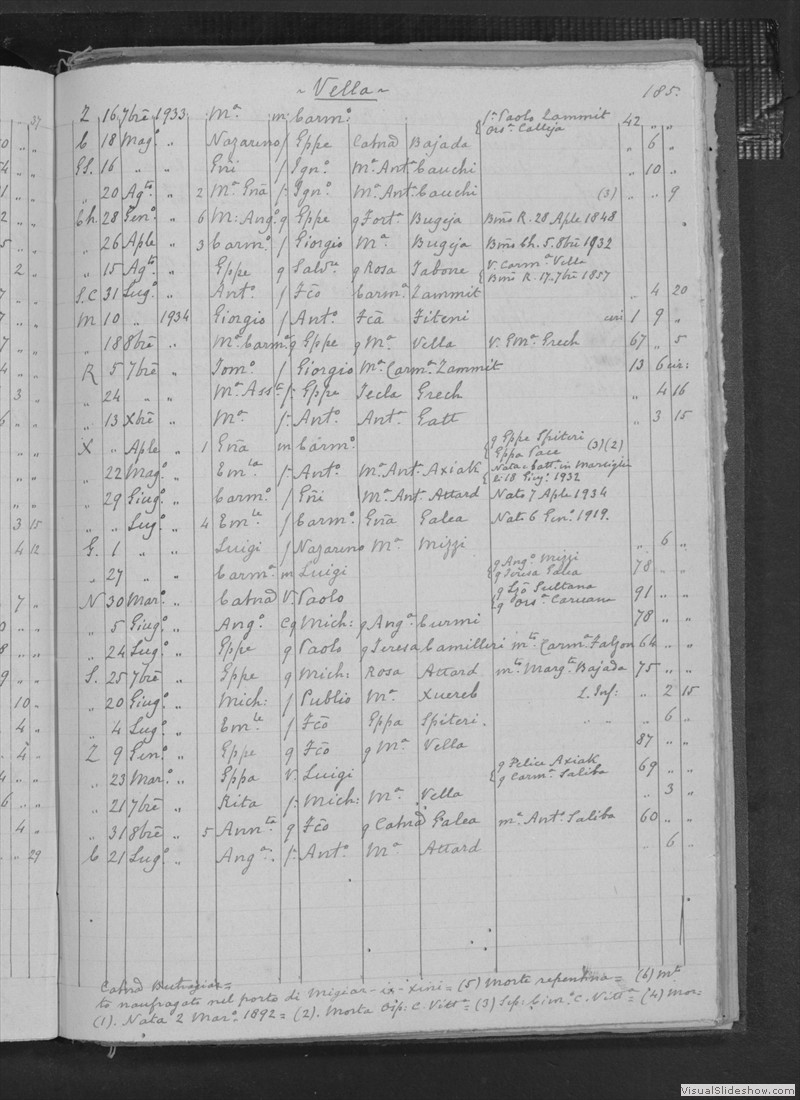 ~ Vella ~ 185.
Z 16 7bre 1933 Mª m Carmº Pª Paolo Zammit 42 " "
Orsª Calleja
C 18 Magº " Nazareno f Eppe Catnd Bajada " 6 "
GS. 16 " " Eñi f Ignº Mª Ant. Cauchi " 10 "
" 20 Agto " 2 Mª Eña f Ignº Mª Ant. Cauchi (3) " " 9
Ch. 28 Genº " 6 M: Angº q Eppe q Fortª Bugeja Bmo R. 28 Aple 1848
" 26 Aple " 3 Carmº f Giorgio Mª Bugeja Bmo Ch. 5. 8bre 1932
" 15 Agto " Eppe q Salvre q Rosa Tabone V. Carmª Vella
Bmo R. 17. 7bre 1857
S.C 31 Lugº " Antº f Fcõ Carmª Zammit " 4 20
M 10 " 1934 Giorgio f Antº Fcã Fiteni ceri 1 9 "
" 18 8bre " Mª Carmª q Eppe q Mª Vella V. Emª Grech 67 " 5
R 5 7bre " Tomº f Giorgio Mª Carmª Zammit 13 6 cir:
" 24 " " Mª Assta f Eppe Tecla Grech " 4 16
" 13 Xbre " Mª f Antº Antª Gatt " 3 15
X " Aple " 1 Eña m Carmº q Eppe Spiteri (3)(2)
Eppa Pace
" 22 Magº " Emla f Antº Mª Ant. Axiak Nata e batt. in Marsiglia
li 18 Giugº 1932
" 29 Giugº " Carmº f Eñi Mª Ant. Attard Nato 7 Aple 1934
" " Lugº " 4 Emle f Carmº Eña Galea Nato 6 Genº 1919.
G. 1 " " Luigi f Nazareno Mª Mizzi " 6 "
" 27 " " Carmª m Luigi q Angº Mizzi 78 " "
q Teresa Galea
N 30 Marº " Catnd V. Paolo q Gjõ Sultana 91 " "
q Orsª Caruana
" 5 Giugº " Angº C q Mich: q Angª Curmi 78 " "
" 24 Lugº " Eppe q Paolo q Teresa Camilleri mto Carmª Falzon 64 " "
S. 25 7bre " Eppe q Mich: Rosa Attard mto Margta Bajada 75 " "
" 20 Giugº " Mich: f Publio Mª Xuereb L. Inf: " 2 15
" 4 Lugº " Emle f Fcõ Eppa Spiteri. " " " 6 "
Z 9 Genº " Eppe q Fcõ q Mª Vella 87 " "
" 23 Marº " Eppa V. Luigi q Felice Axiak 69 " "
q Carmª Saliba
" 21 7bre " Rita f Mich: Mª Vella " 3 "
" 31 8bre " 5 Annta q Fcõ q Catnd Galea mª Antº Saliba 60 " "
C 21 Lugº " Angª f Antº Mª Attard " 6 "
Catnd Buttigieg =
to naufragato nel porto di Migiar-ix-Xini = (5) Morte repentina = (6) mto
(1). Nata 2 Marº 1892 = (2). Morta Osp: C. Vittª = (3) Sep: Cimº C. Vittª = (4) Mor=
VisualSlideshow.com